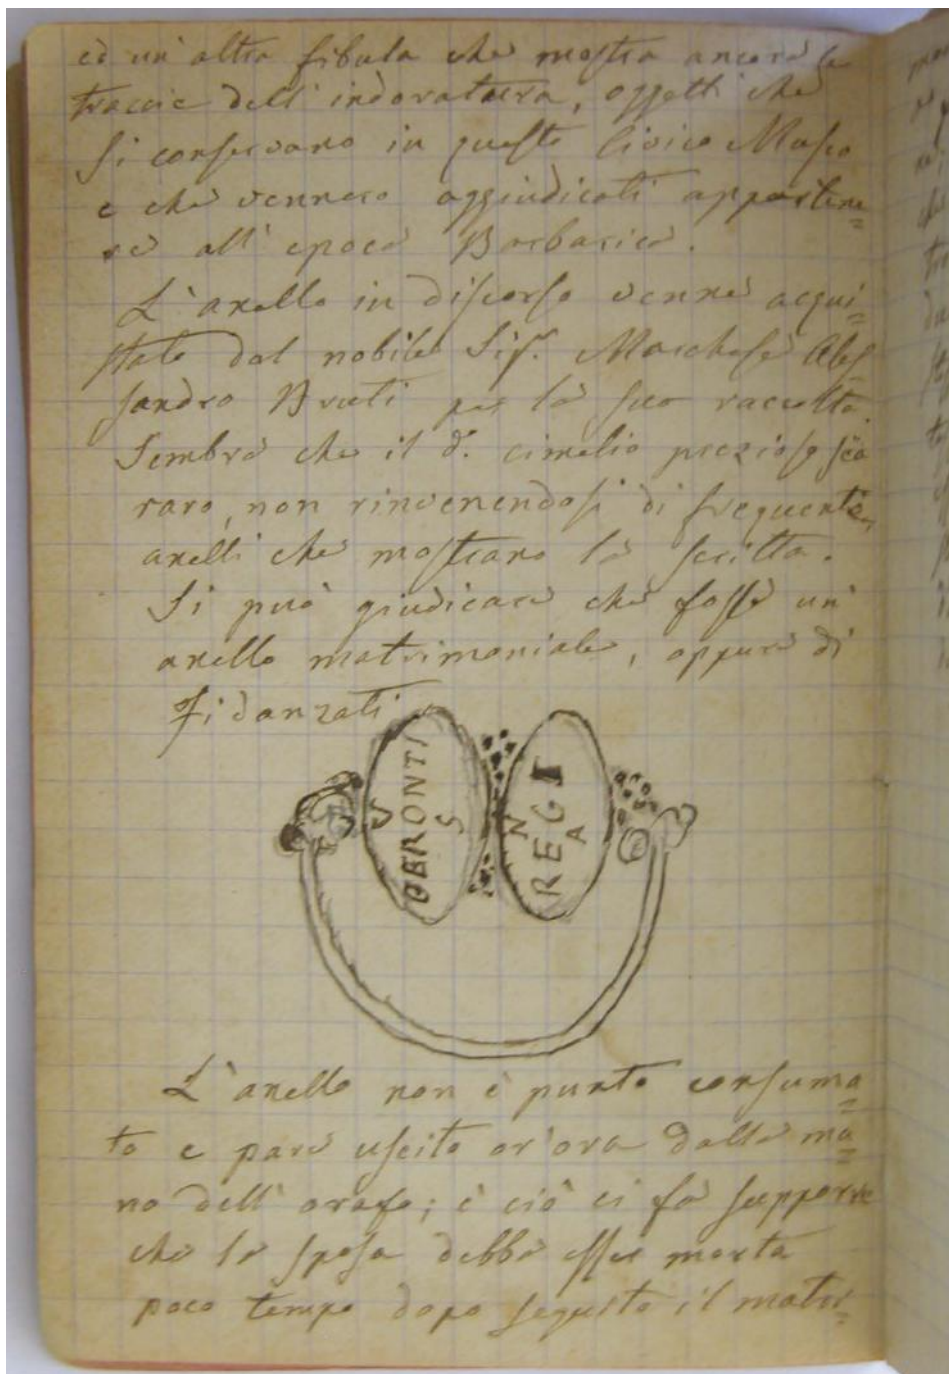 ed un'altra fibula che mostra ancora le
traccie dell'indoratura, oggetti che
si conservano in questo Civico Museo
e che vennero aggiudicati appartene=
re all'epoca Barbarica.
L'anello in discorso venne acqui=
stato dal nobile Sigr. Marchese Ales=
sandro Bruti per la sua raccolta.
Sembra che il do. cimelio prezioso sia
raro, non rinvenendosi di frequente
anelli che mostrano la scritta.
Si può giudicare che fosse un'
anello matrimoniale, oppure di
Fidanzati
GERONTI
V S
REGI
N A
L'anello non è punto consuma=
to e pare uscito or'ora dalla ma=
no dell'orafo; è ciò ci fa supporre
che la sposa debba esser morta
poco tempo dopo seguito il matri=